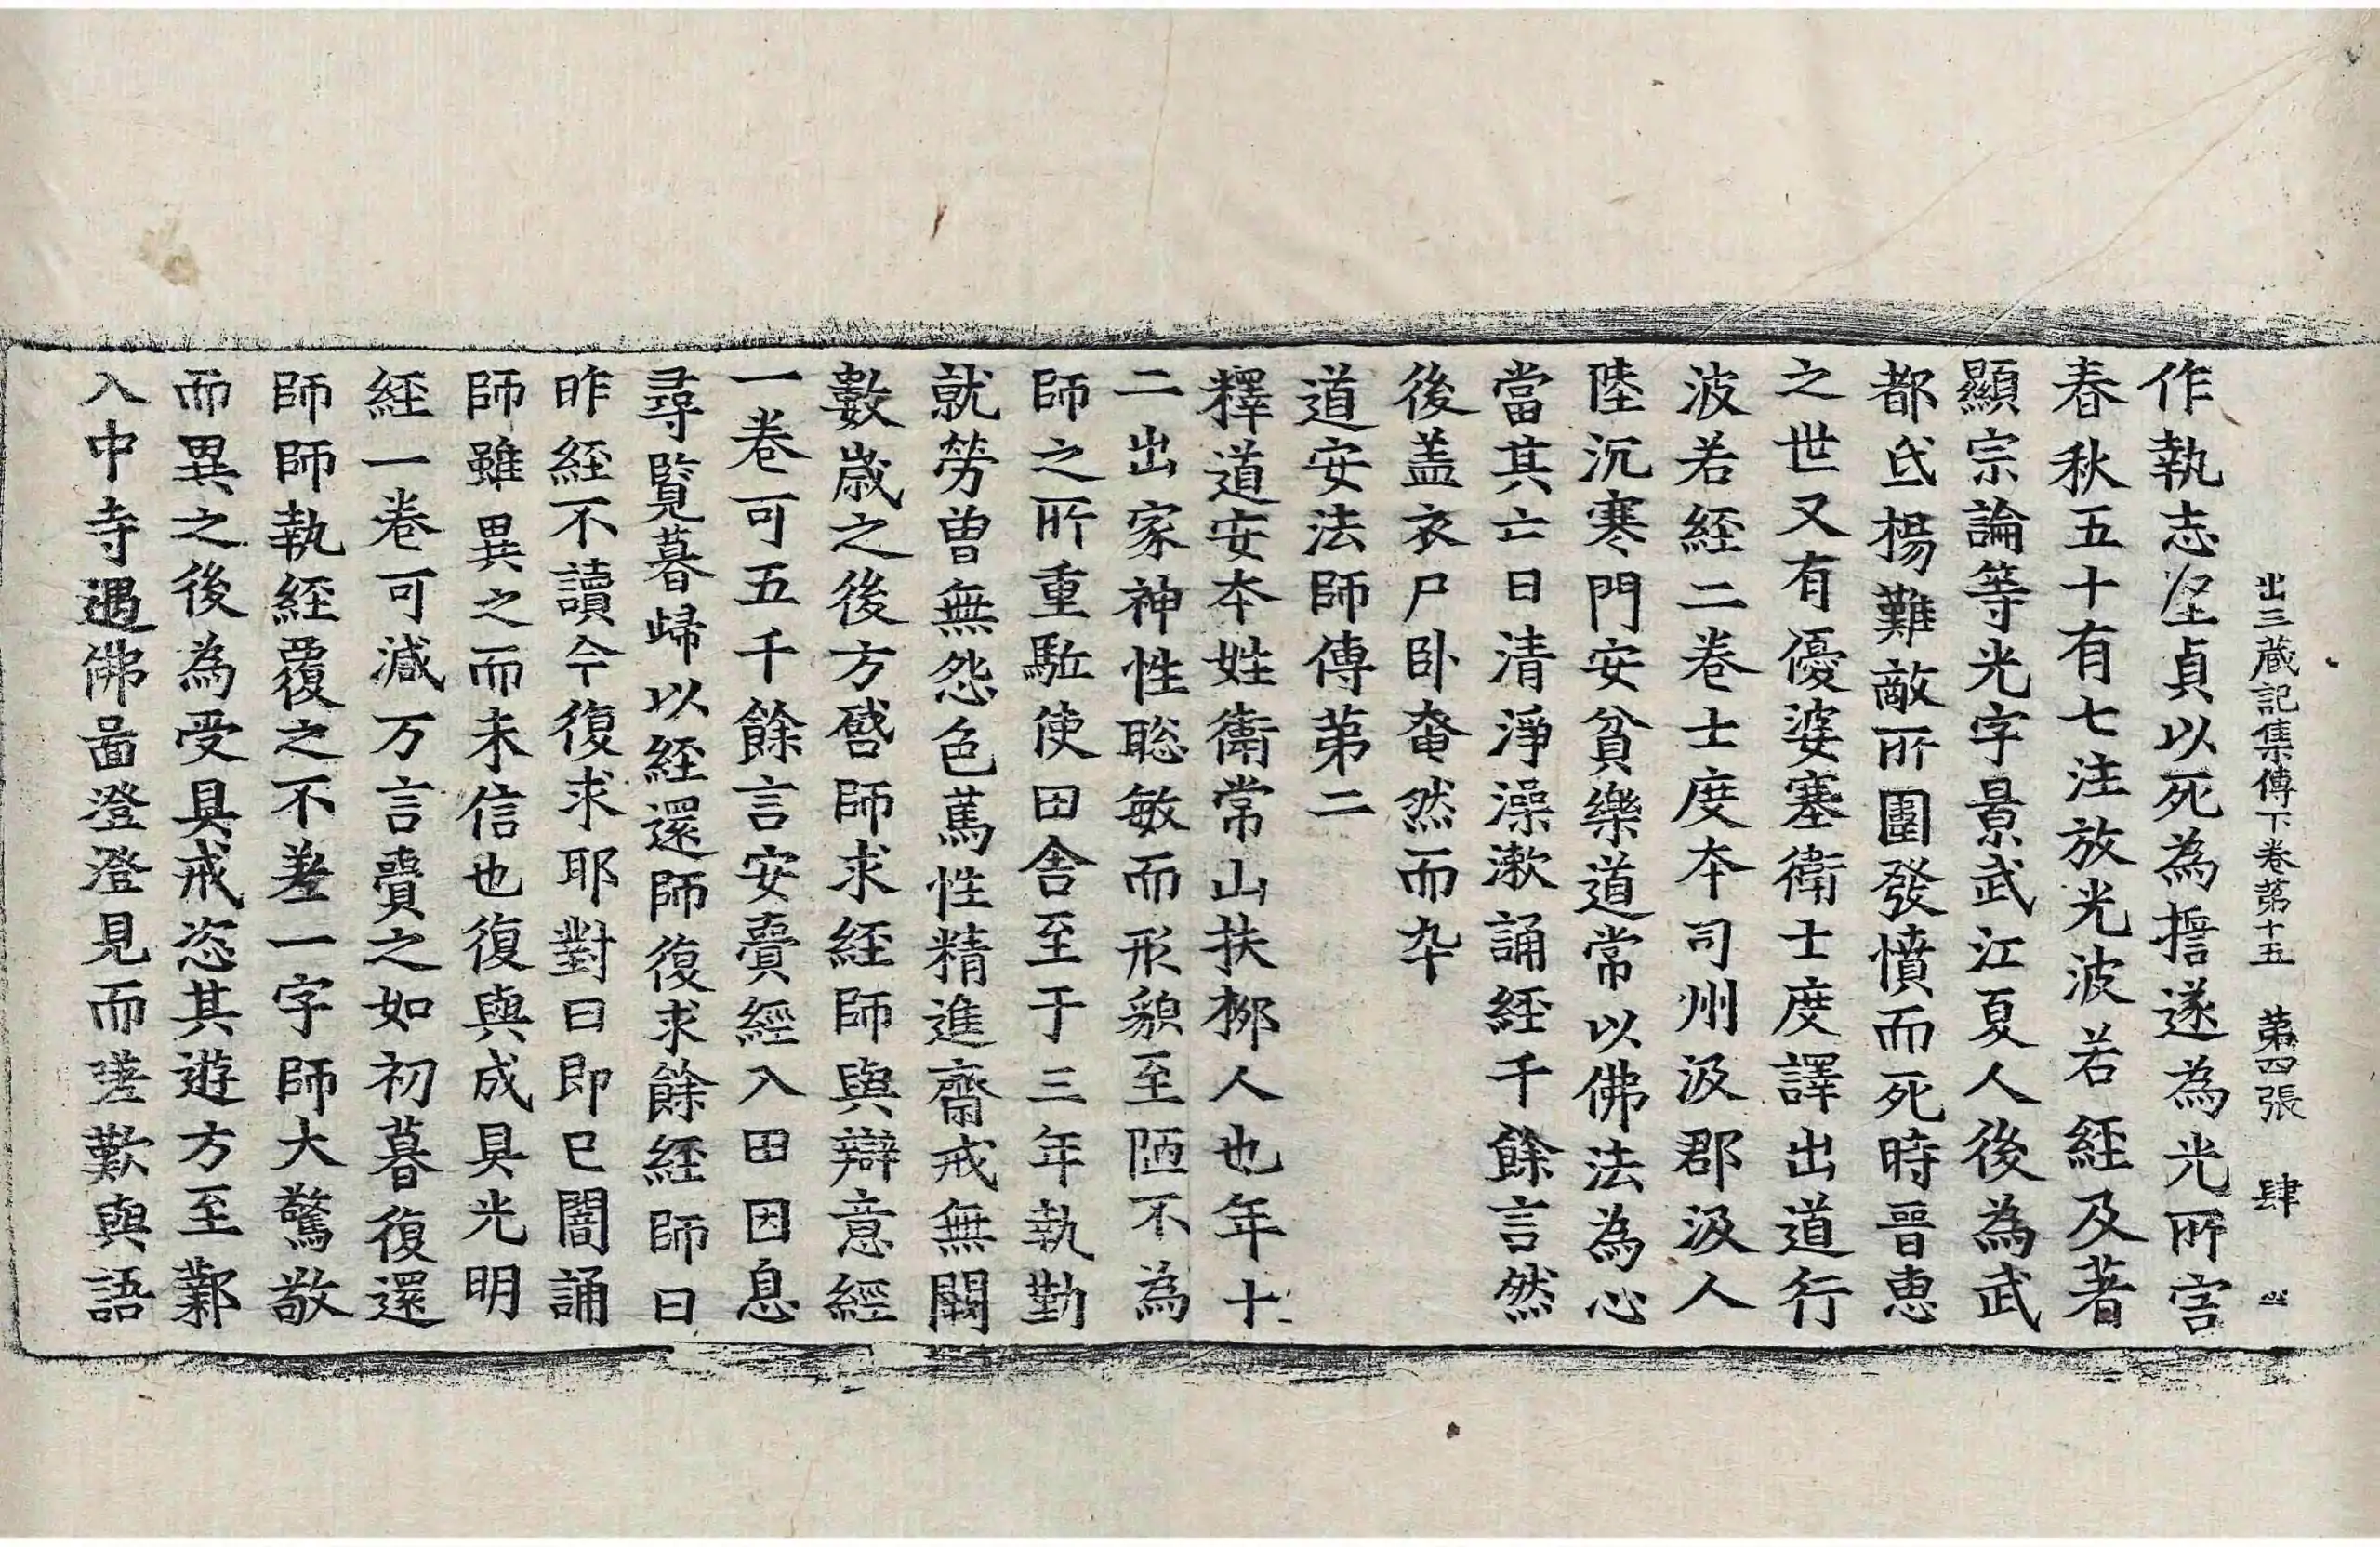 出三蔵記集傳下卷苐十五 苐四張 肆
作執志坚貞以死為擔遂為光所害
春秋五十有七注放光波若経及著
顯宗論等光字景武江夏人後為武
都氐楊難敵所圍發憤而死時晉惠
之世又有優婆塞衛士度譯出道行
波若経二卷士度夲司州汲郡汲人
陸沉寒門安貧樂道常以佛法為心
當其亡日清淨澡漱誦経千餘言然
後盖衣尸卧奄然而卒
道安法師傳苐二
釋道安夲姓衛常山扶柳人也年十
二出家神性聡敏而形貌至陋不為
師之所重駈使田舎至于三年執勤
就勞曽無怨色蔦性精進齋戒無闕
數歳之後方啓師求経師與辯意經
一卷可五千餘言安賷經入田因息
尋覧暮歸以経還師復求餘経師曰
昨経不讀今復求耶對曰即已闇誦
師雖異之而未信也復與成具光明
経一卷可減万言賷之如初暮復還
師師執経覆之不差一字師大驚敬
而異之後為受具戒恣其遊方至鄴
入中寺遇佛啚澄澄見而嗟歎與語